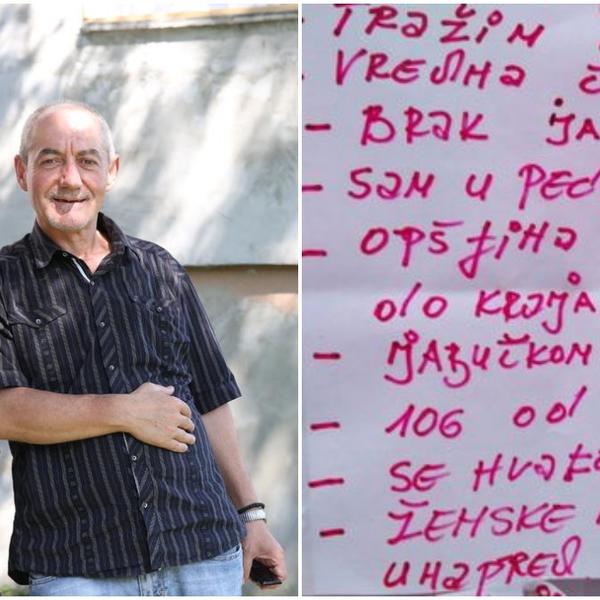 - TRAŽIM
- VREDNA Č
- BRAK JA
- SAM U PEC
- OPŠTINA
OD KROJA
- JABUČKOM
- 106 OD
- SE HVATA
- ŽENSKE
UNAPRED